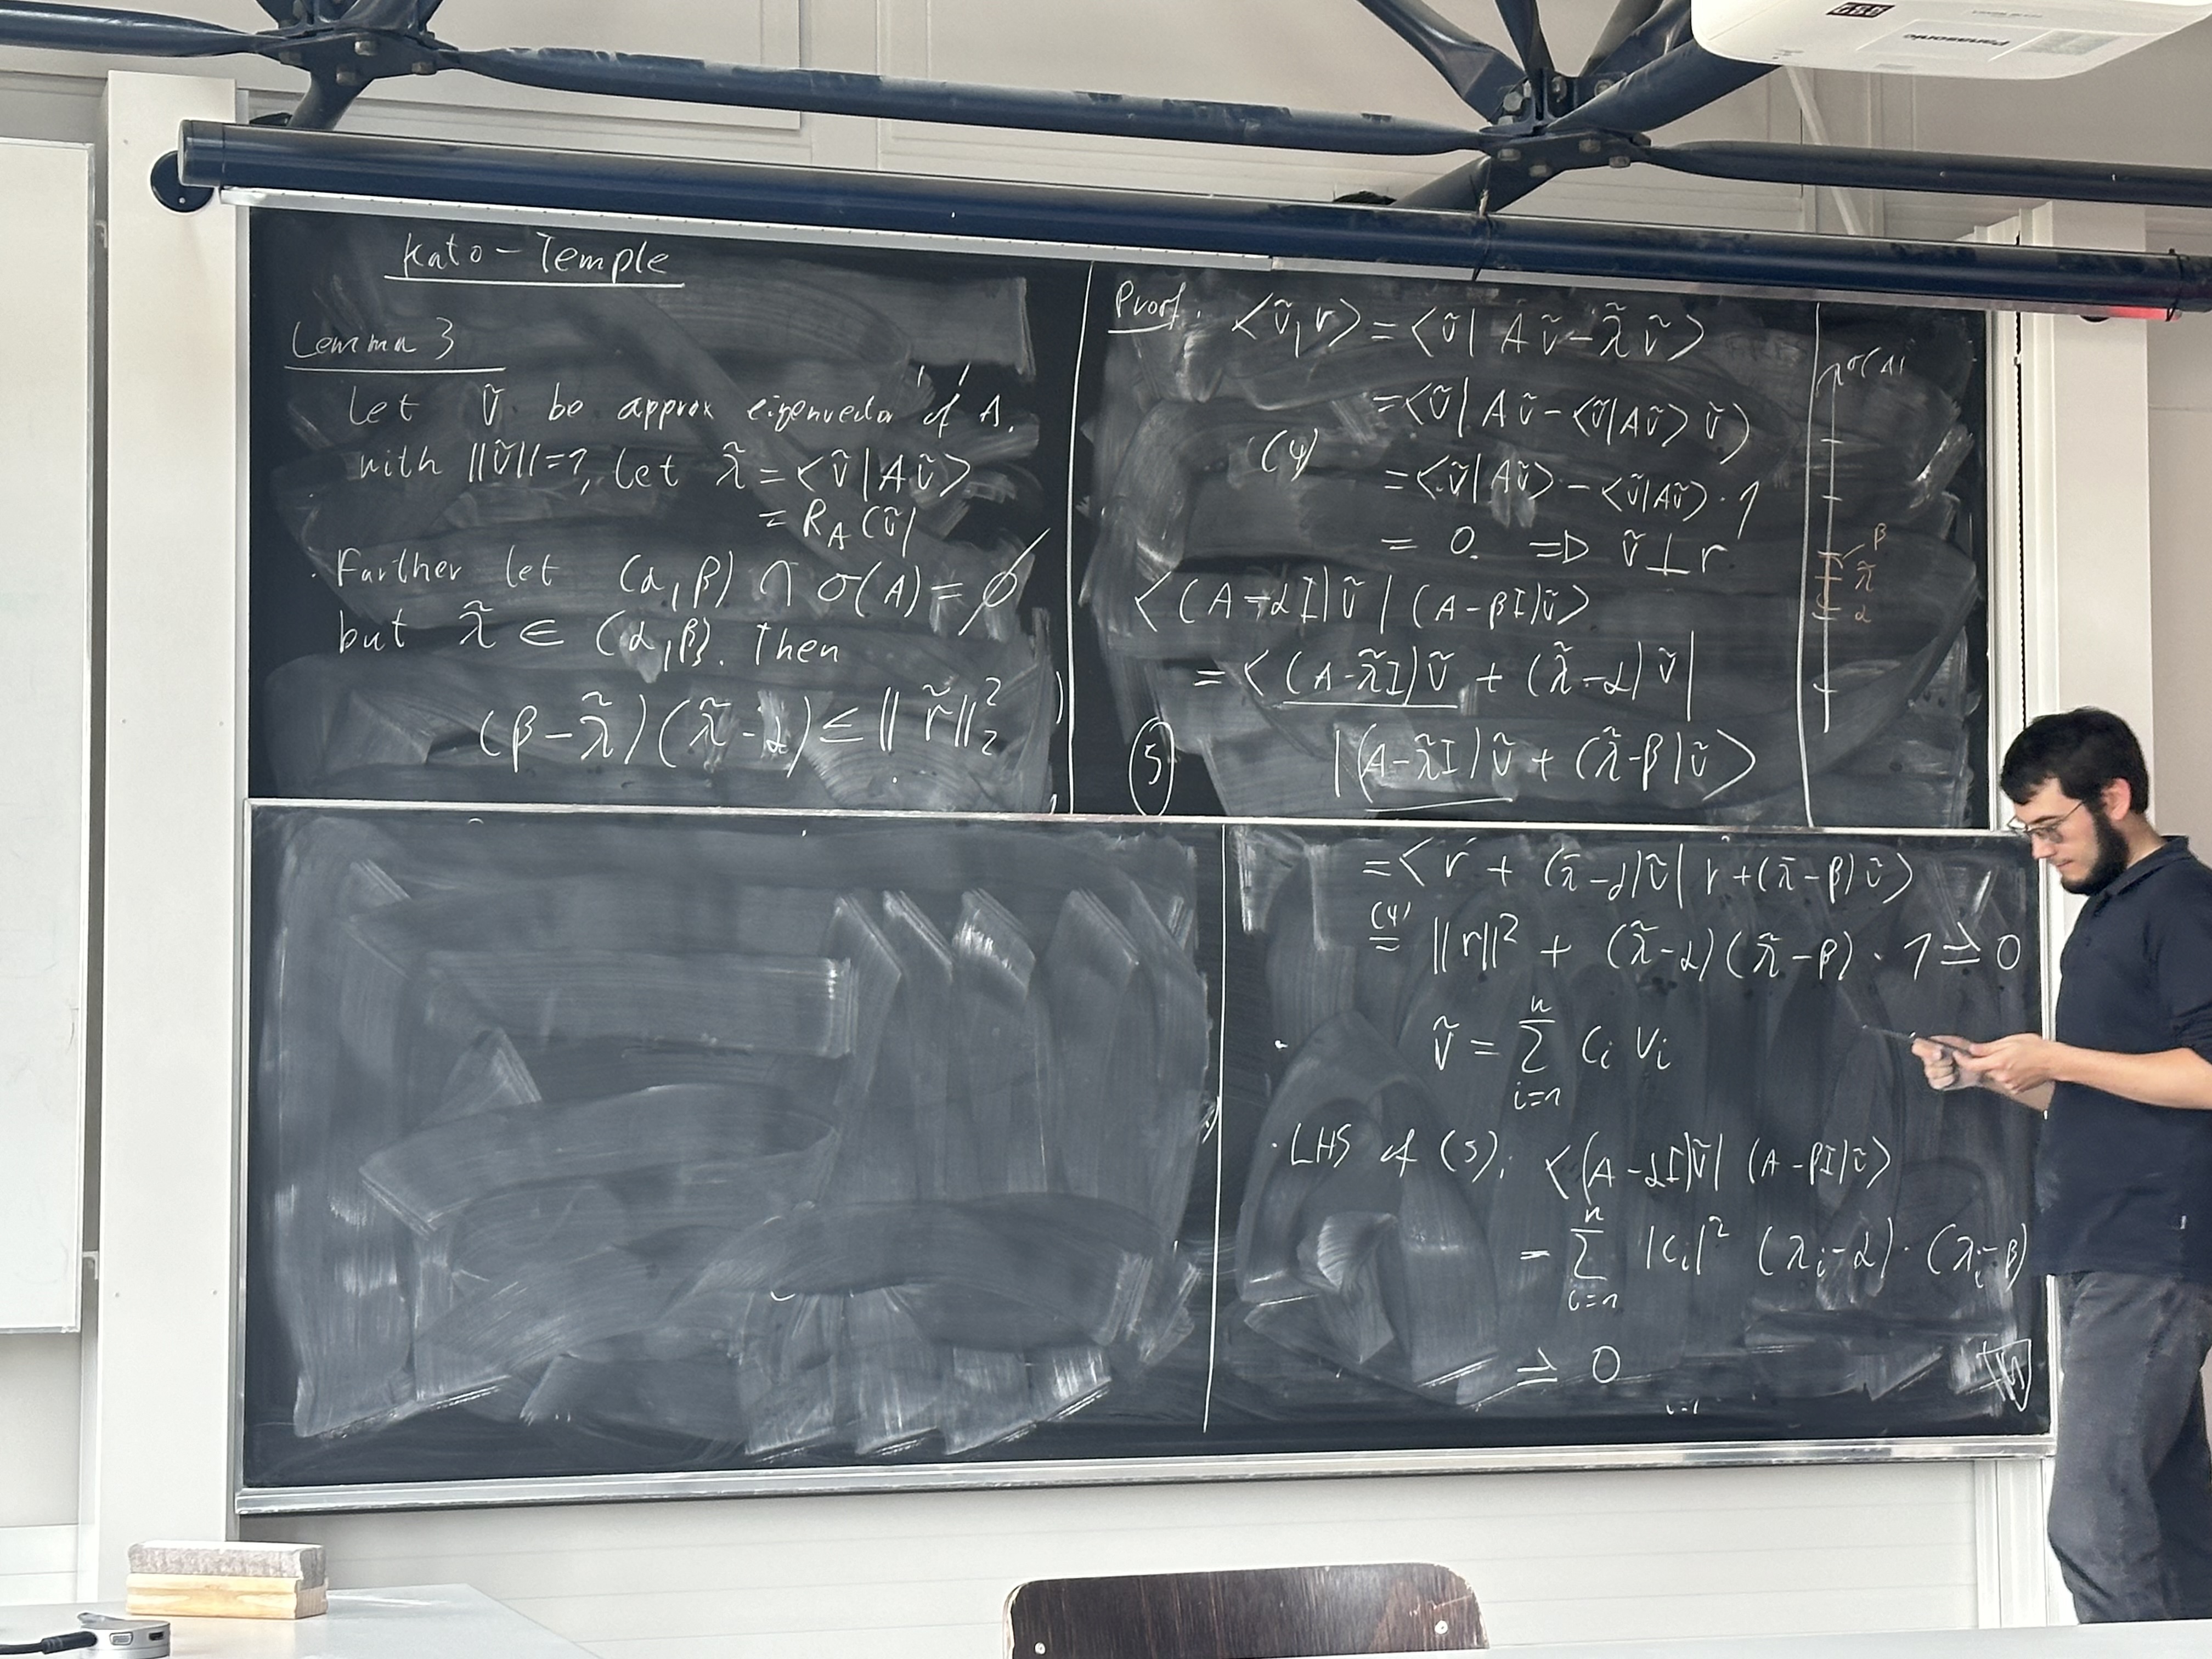 Panasonic
Kato-Temple
Lemma 3
Let ṽ be approx eigenvector of A.
with ||ṽ||=1, let λ̃ = <ṽ|Aṽ>
= R_A(ṽ)
Further let (α,β) ∩ σ(A) = ∅
but λ̃ ∈ (α,β). Then
(β-λ̃)(λ̃-α) ≤ ||r̃||₂²
Proof. <ṽ,r> = <ṽ| Aṽ-λ̃ṽ>
= <ṽ| Aṽ - <ṽ|Aṽ> ṽ>
(4) = <ṽ|Aṽ> - <ṽ|Aṽ>·1
= 0. => ṽ⊥r
<(A-αI)ṽ | (A-βI)ṽ>
= <(A-λ̃I)ṽ + (λ̃-α)ṽ|
(5) |(A-λ̃I)ṽ + (λ̃-β)ṽ>
σ(A)
β
λ̃
α
= <r + (λ̃-α)ṽ| r+(λ̃-β)ṽ>
(4)
= ||r||² + (λ̃-α)(λ̃-β)·1 ≥ 0
ṽ = Σ_{i=1}^{n} c_i v_i
· LHS of (5): <(A-αI)ṽ| (A-βI)ṽ>
= Σ_{i=1}^{n} |c_i|² (λ_i-α)·(λ_i-β)
≥ 0